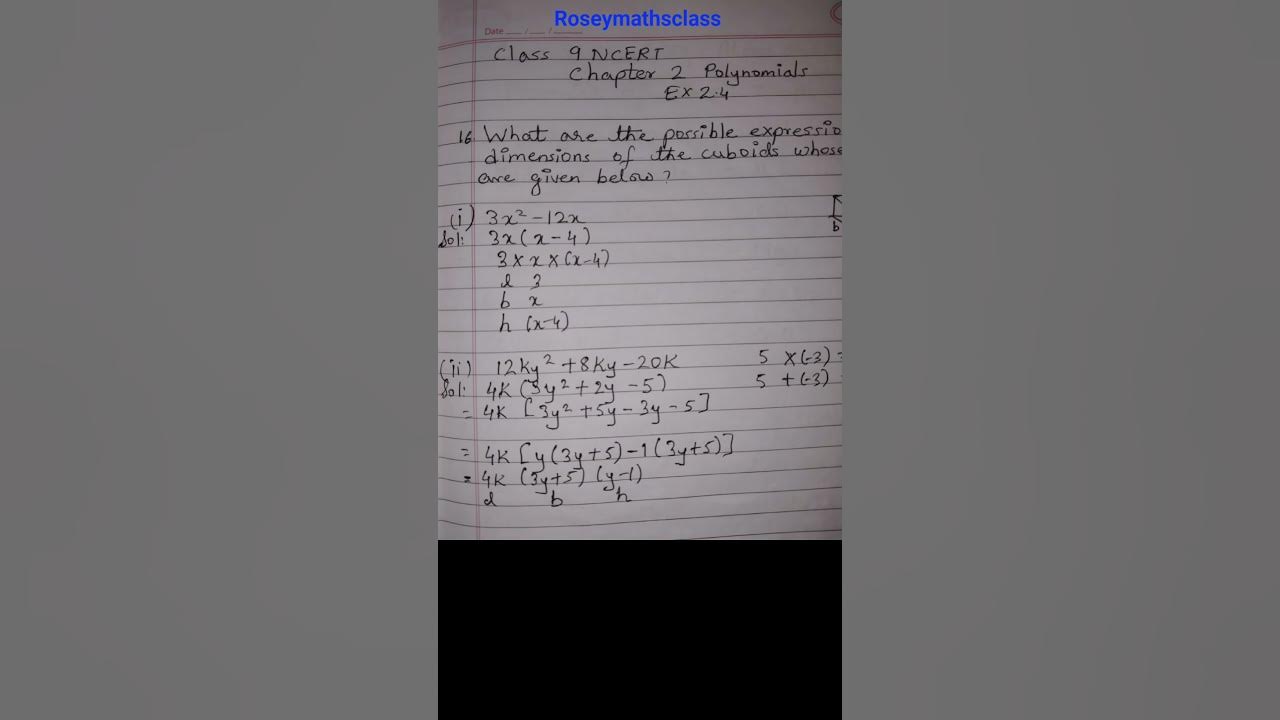 Roseymathsclass
Date ___ / ___ / ______
Class 9 NCERT
Chapter 2 Polynomials
EX 2.4
16 What are the possible expressio
dimensions of the cuboids whose
are given below?
(i) 3x² - 12x
Sol: 3x(x - 4)
3 × x × (x-4)
l 3
b x
h (x-4)
b
(ii) 12Ky² + 8Ky - 20K 5 × (-3) =
Sol: 4K (3y² + 2y - 5) 5 + (-3)
= 4K [3y² + 5y - 3y - 5]
= 4K [y(3y+5) - 1(3y+5)]
= 4K (3y+5) (y-1)
l b h